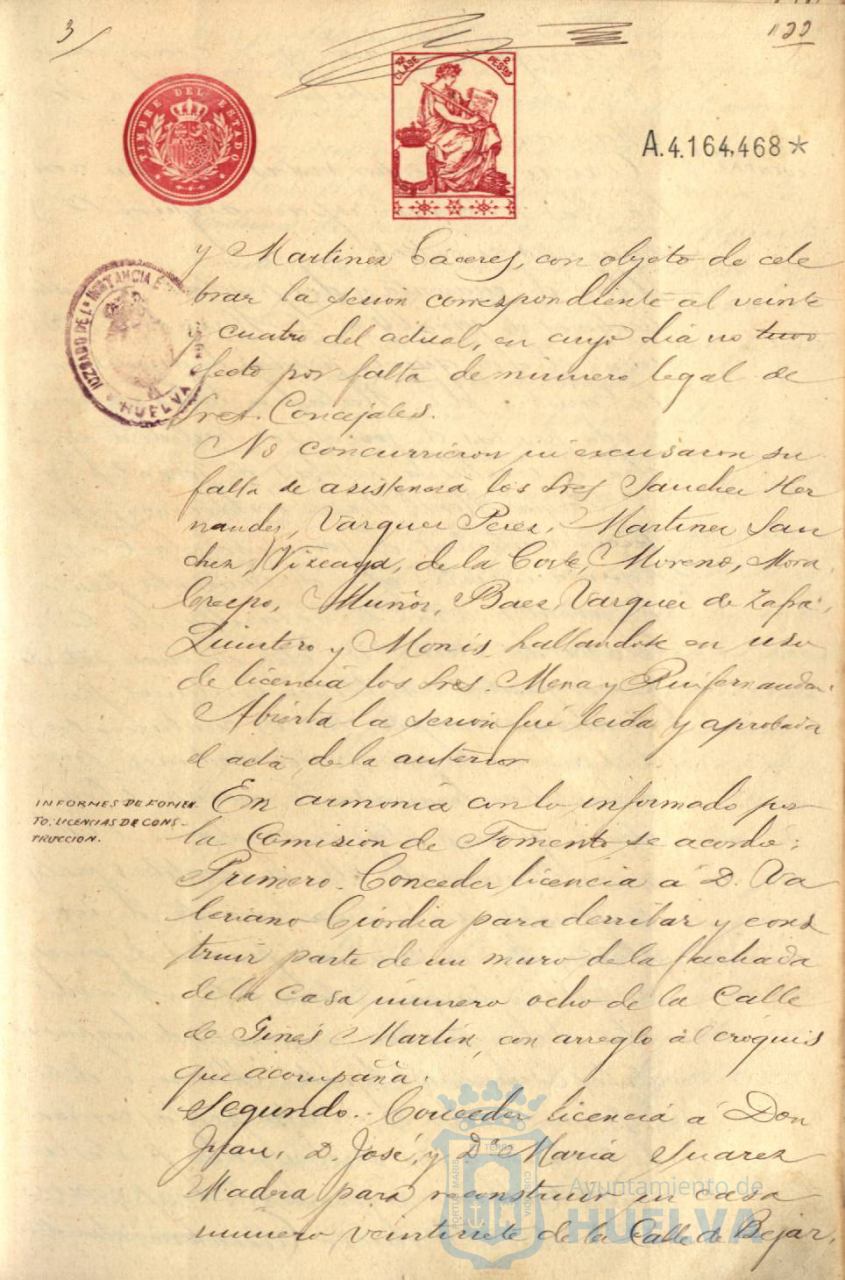 3
122
TIMBRE DEL ESTADO
12ª CLASE
2 PESTAS
A.4.164.468*
JUZGADO DE 1ª INSTANCIA E
HUELVA
y Martinez Cáceres, con objeto de cele
brar la sesion correspondiente al veinte
y cuatro del actual, en cuyo dia no tuvo
efecto por falta de número legal de
Sres. Concejales.
No concurrieron ni excusaron su
falta de asistencia los Sres Sanchez Her
nandez, Vazquez Perez, Martinez San
chez, Vizcaya, de la Corte, Moreno, Mora,
Crespo, Muñoz, Baez, Vazquez de Zafra,
Quintero y Monis hallandose en uso
de licencia los Sres. Mena y Ruifernandez.
Abierta la sesion fué leida y aprobada
el acta de la anterior
INFORMES DE FOMEN
TO: LICENCIAS DE CONS-
TRUCCION.
En armonia con lo informado por
la Comision de Fomento se acordó:
Primero. Conceder licencia á D. Va
leriano Ciordia para derribar y cons
truir parte de un muro de la fachada
de la casa número ocho de la Calle
de Ginés Martin, con arreglo al cróquis
que acompaña.
Segundo. Conceder licencia á Don
Juan, D. José, y Dª Maria Suarez
Madra para reconstruir su casa
número veintisiete de la Calle de Bejar,
PORTUS MARIS
CUSTODIA
Ayuntamiento de
HUELVA